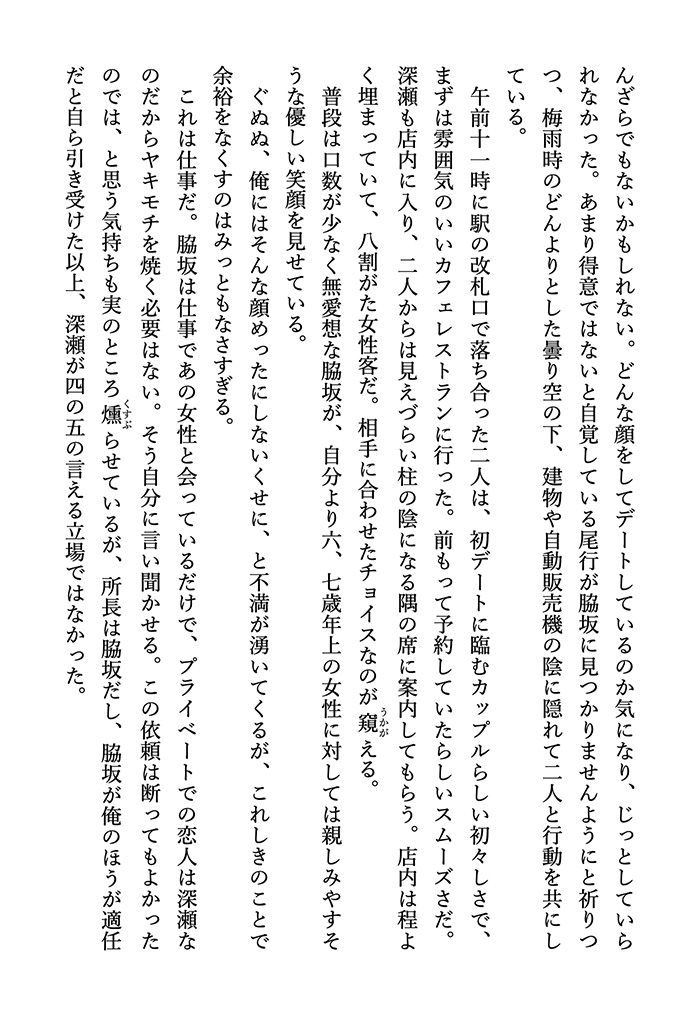 んざらでもないかもしれない。どんな顔をしてデートしているのか気になり、じっとしていら
れなかった。あまり得意ではないと自覚している尾行が脇坂に見つかりませんようにと祈りつ
つ、梅雨時のどんよりとした曇り空の下、建物や自動販売機の陰に隠れて二人と行動を共にし
ている。
午前十一時に駅の改札口で落ち合った二人は、初デートに臨むカップルらしい初々しさで、
まずは雰囲気のいいカフェレストランに行った。前もって予約していたらしいスムーズさだ。
深瀬も店内に入り、二人からは見えづらい柱の陰になる隅の席に案内してもらう。店内は程よ
く埋まっていて、八割がた女性客だ。相手に合わせたチョイスなのが窺うかがえる。
普段は口数が少なく無愛想な脇坂が、自分より六、七歳年上の女性に対しては親しみやすそ
うな優しい笑顔を見せている。
ぐぬぬ、俺にはそんな顔めったにしないくせに、と不満が湧いてくるが、これしきのことで
余裕をなくすのはみっともなさすぎる。
これは仕事だ。脇坂は仕事であの女性と会っているだけで、プライベートでの恋人は深瀬な
のだからヤキモチを焼く必要はない。そう自分に言い聞かせる。この依頼は断ってもよかった
のでは、と思う気持ちも実のところ燻くすぶらせているが、所長は脇坂だし、脇坂が俺のほうが適任
だと自ら引き受けた以上、深瀬が四の五の言える立場ではなかった。